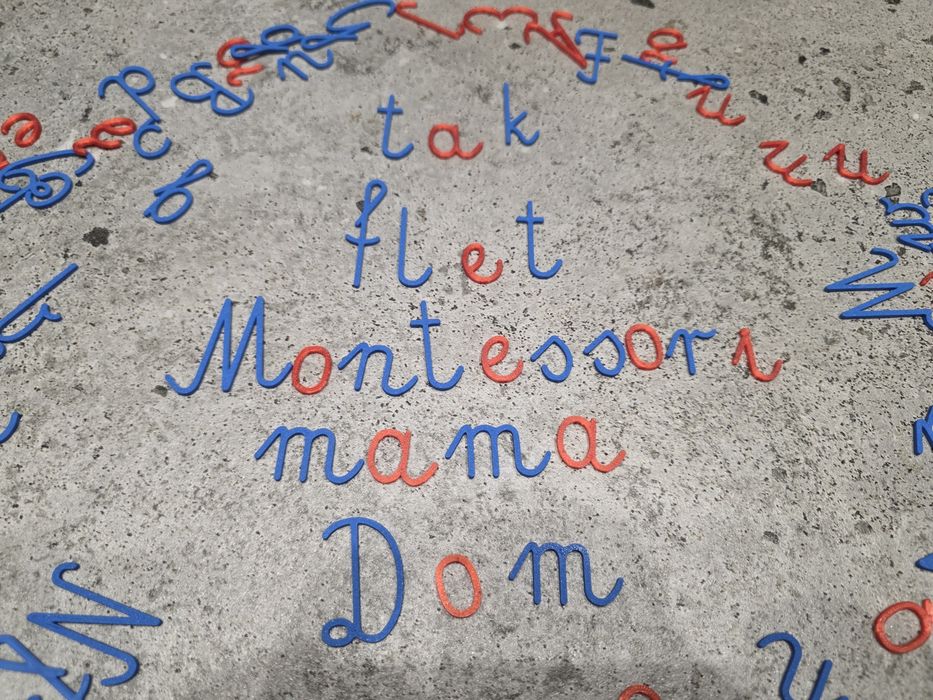 tak
flet
Montessori
mama
Dom